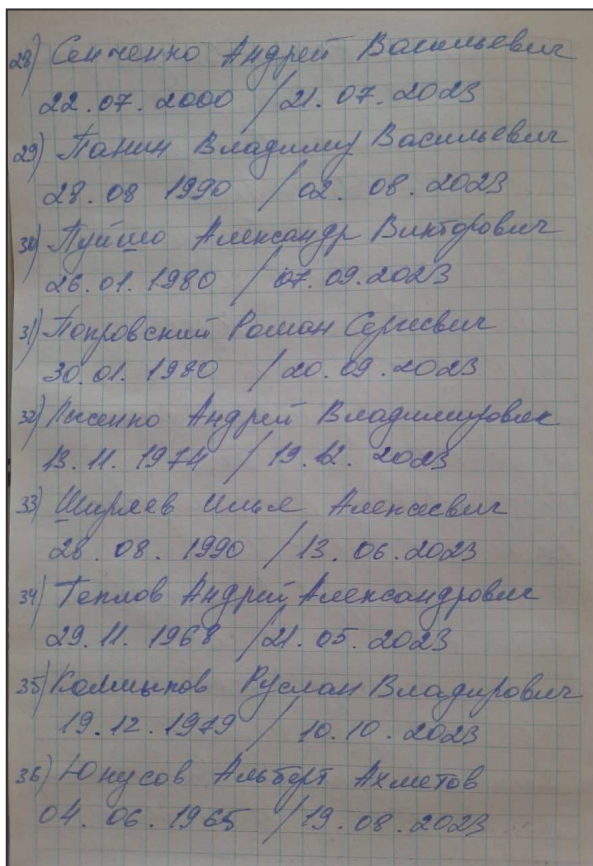 28) Сенченко Андрей Васильевич
22.07.2000 / 21.07.2023
29) Панин Владимир Васильевич
28.08 1990 / 02.08.2023
30) Пуйшо Александр Викторович
26.01.1980 / 07.09.2023
31) Покровский Роман Сергевич
30.01.1980 / 20.09.2023
32) Лысенко Андрей
13.11.1974 / 19.12.2023
33) Ширяев Илья Алексеевич
28.08.1990 / 13.06.2023
34) Теплов Андрей Александрович
29.11.1968 / 21.05.2023
35) Колмыков Руслан Владирович
19.12.1979 / 10.10.2023
36) Юнусов Альберт Ахметов
04.06.1965 / 19.08.2023